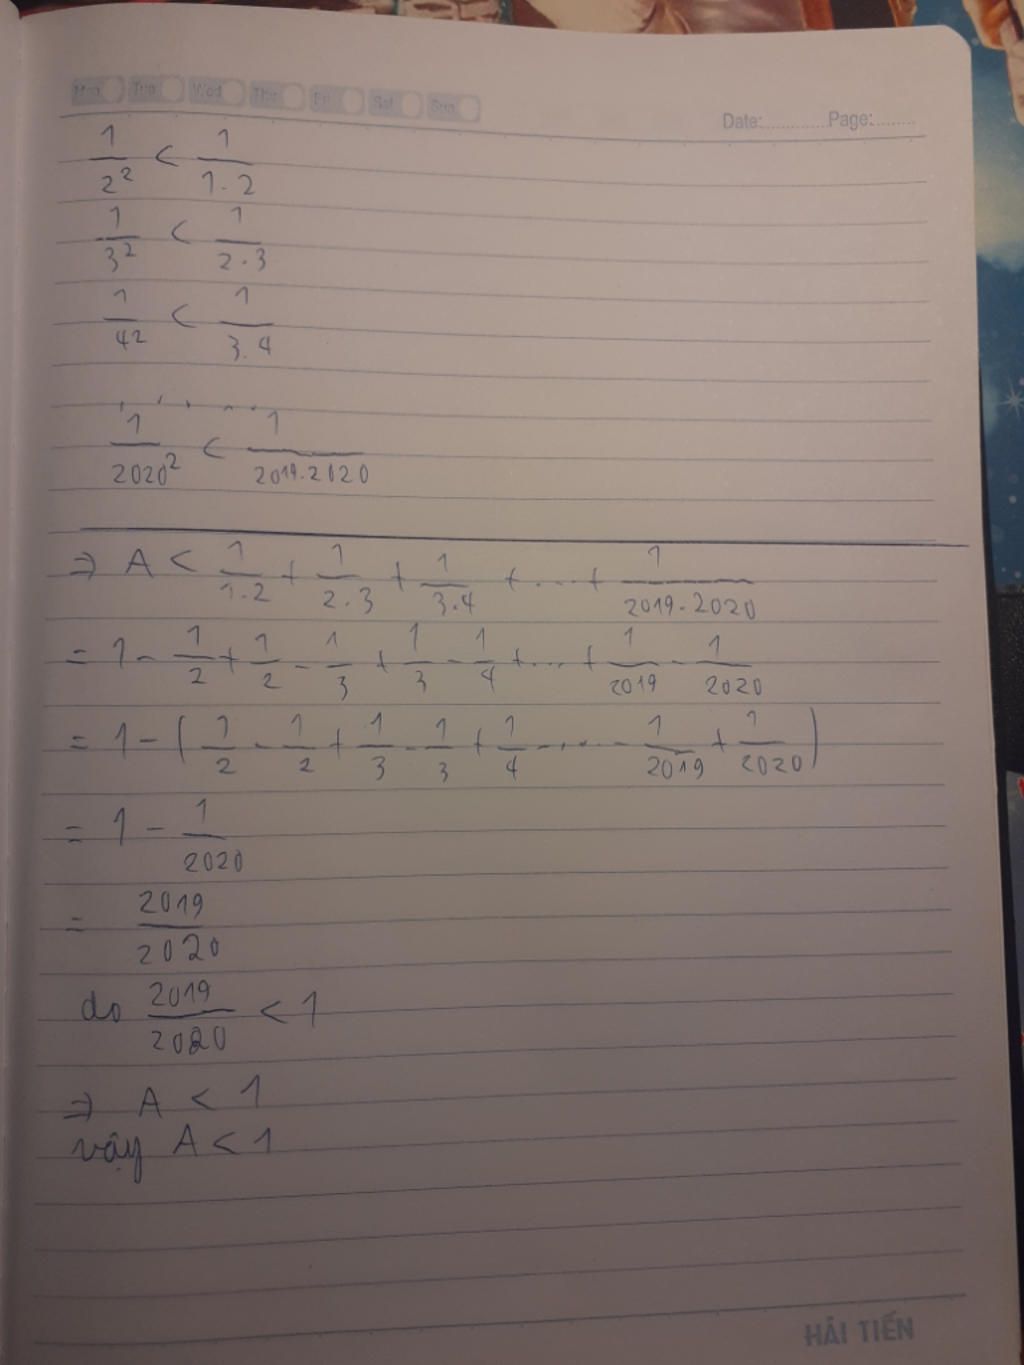 Mon Tue Wed Thu Fri Sat Sun
Date:............Page:........
1/2² < 1/1.2
1/3² < 1/2.3
1/4² < 1/3.4
. . . . . .
1/2020² < 1/2019.2020
⇒ A < 1/1.2 + 1/2.3 + 1/3.4 + ... + 1/2019.2020
= 1 - 1/2 + 1/2 - 1/3 + 1/3 - 1/4 + ... + 1/2019 - 1/2020
= 1 - (1/2 - 1/2 + 1/3 - 1/3 + 1/4 - ... - 1/2019 + 1/2020)
= 1 - 1/2020
= 2019/2020
do 2019/2020 < 1
⇒ A < 1
vậy A < 1
HẢI TIẾN